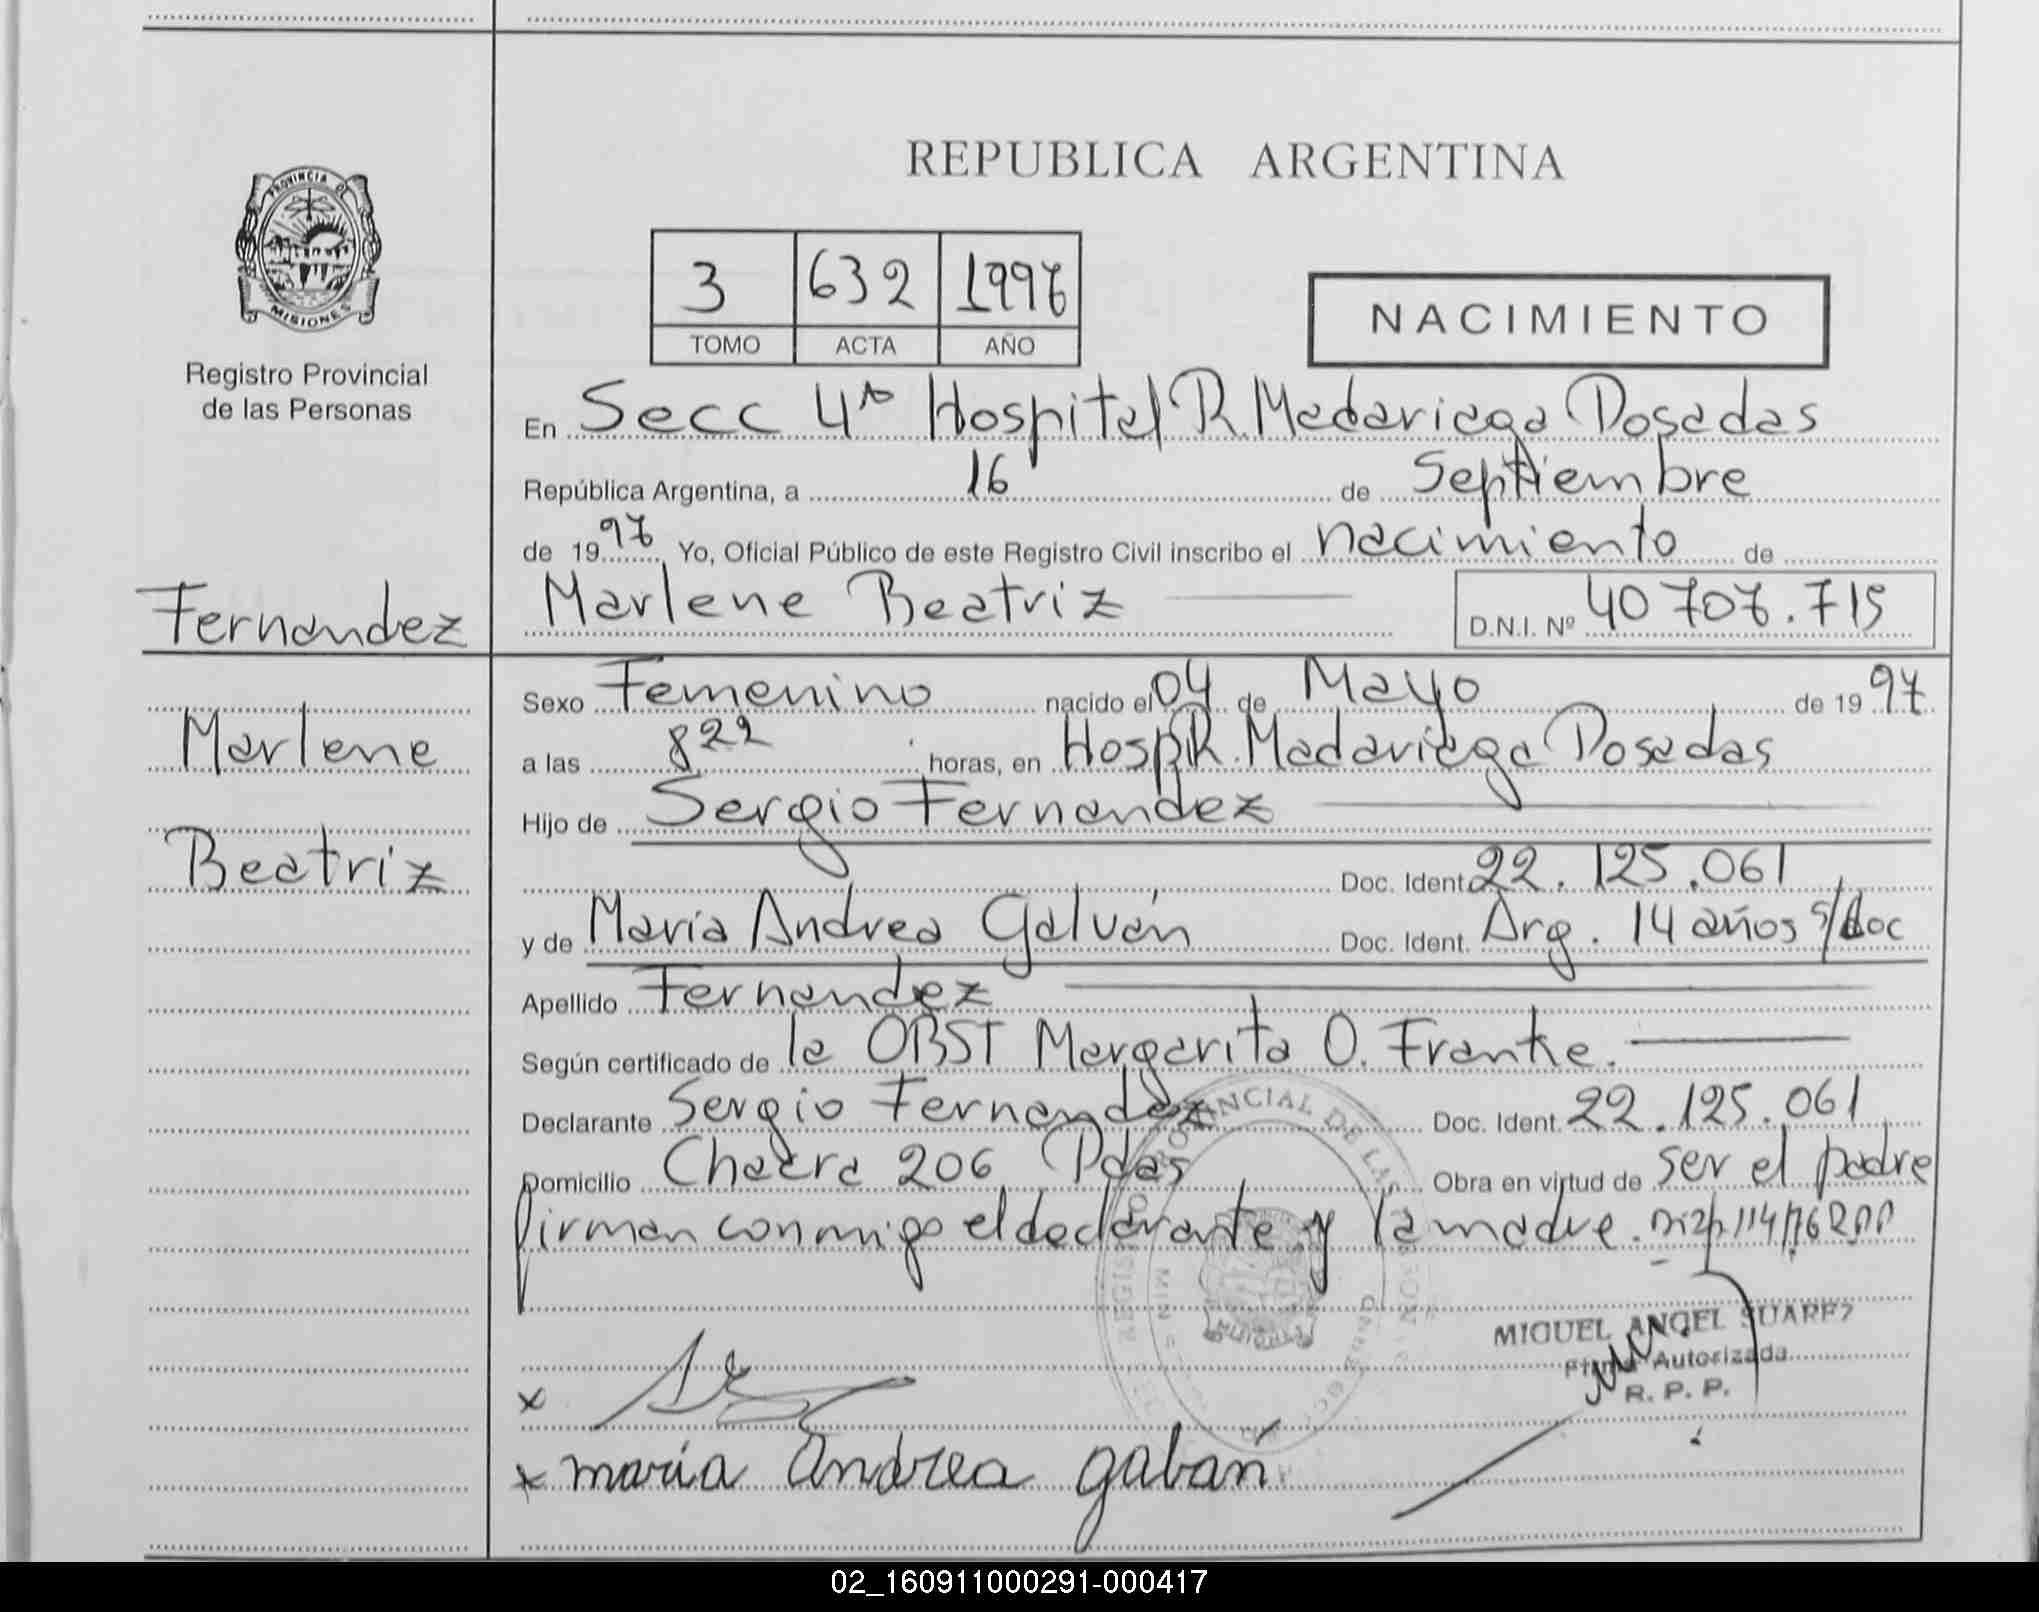 REPUBLICA ARGENTINA
PROVINCIA DE
MISIONES
Registro Provincial
de las Personas
3 632 1997
TOMO ACTA AÑO
NACIMIENTO
En Secc 4ª Hospital R. Madariaga Posadas
República Argentina, a 16 de Septiembre
de 1997 Yo, Oficial Público de este Registro Civil inscribo el nacimiento de
Fernandez
Marlene Beatriz
D.N.I. Nº 40707.715
Marlene
Beatriz
Sexo Femenino nacido el 04 de Mayo de 1997
a las 8 22 horas, en Hosp R. Madariaga Posadas
Hijo de Sergio Fernandez
Doc. Ident. 22.125.061
y de María Andrea Galván Doc. Ident. Arg. 14 años s/doc
Apellido Fernandez
Según certificado de la OBST Margarita O. Franke.
Declarante Sergio Fernandez Doc. Ident. 22.125.061
Domicilio Chacra 206 Pdas Obra en virtud de ser el padre
firman conmigo el declarante y la madre.
MIGUEL ANGEL SUAREZ
Firma Autorizada
R. P. P.
x
x maría Andrea gabán
02_160911000291-000417